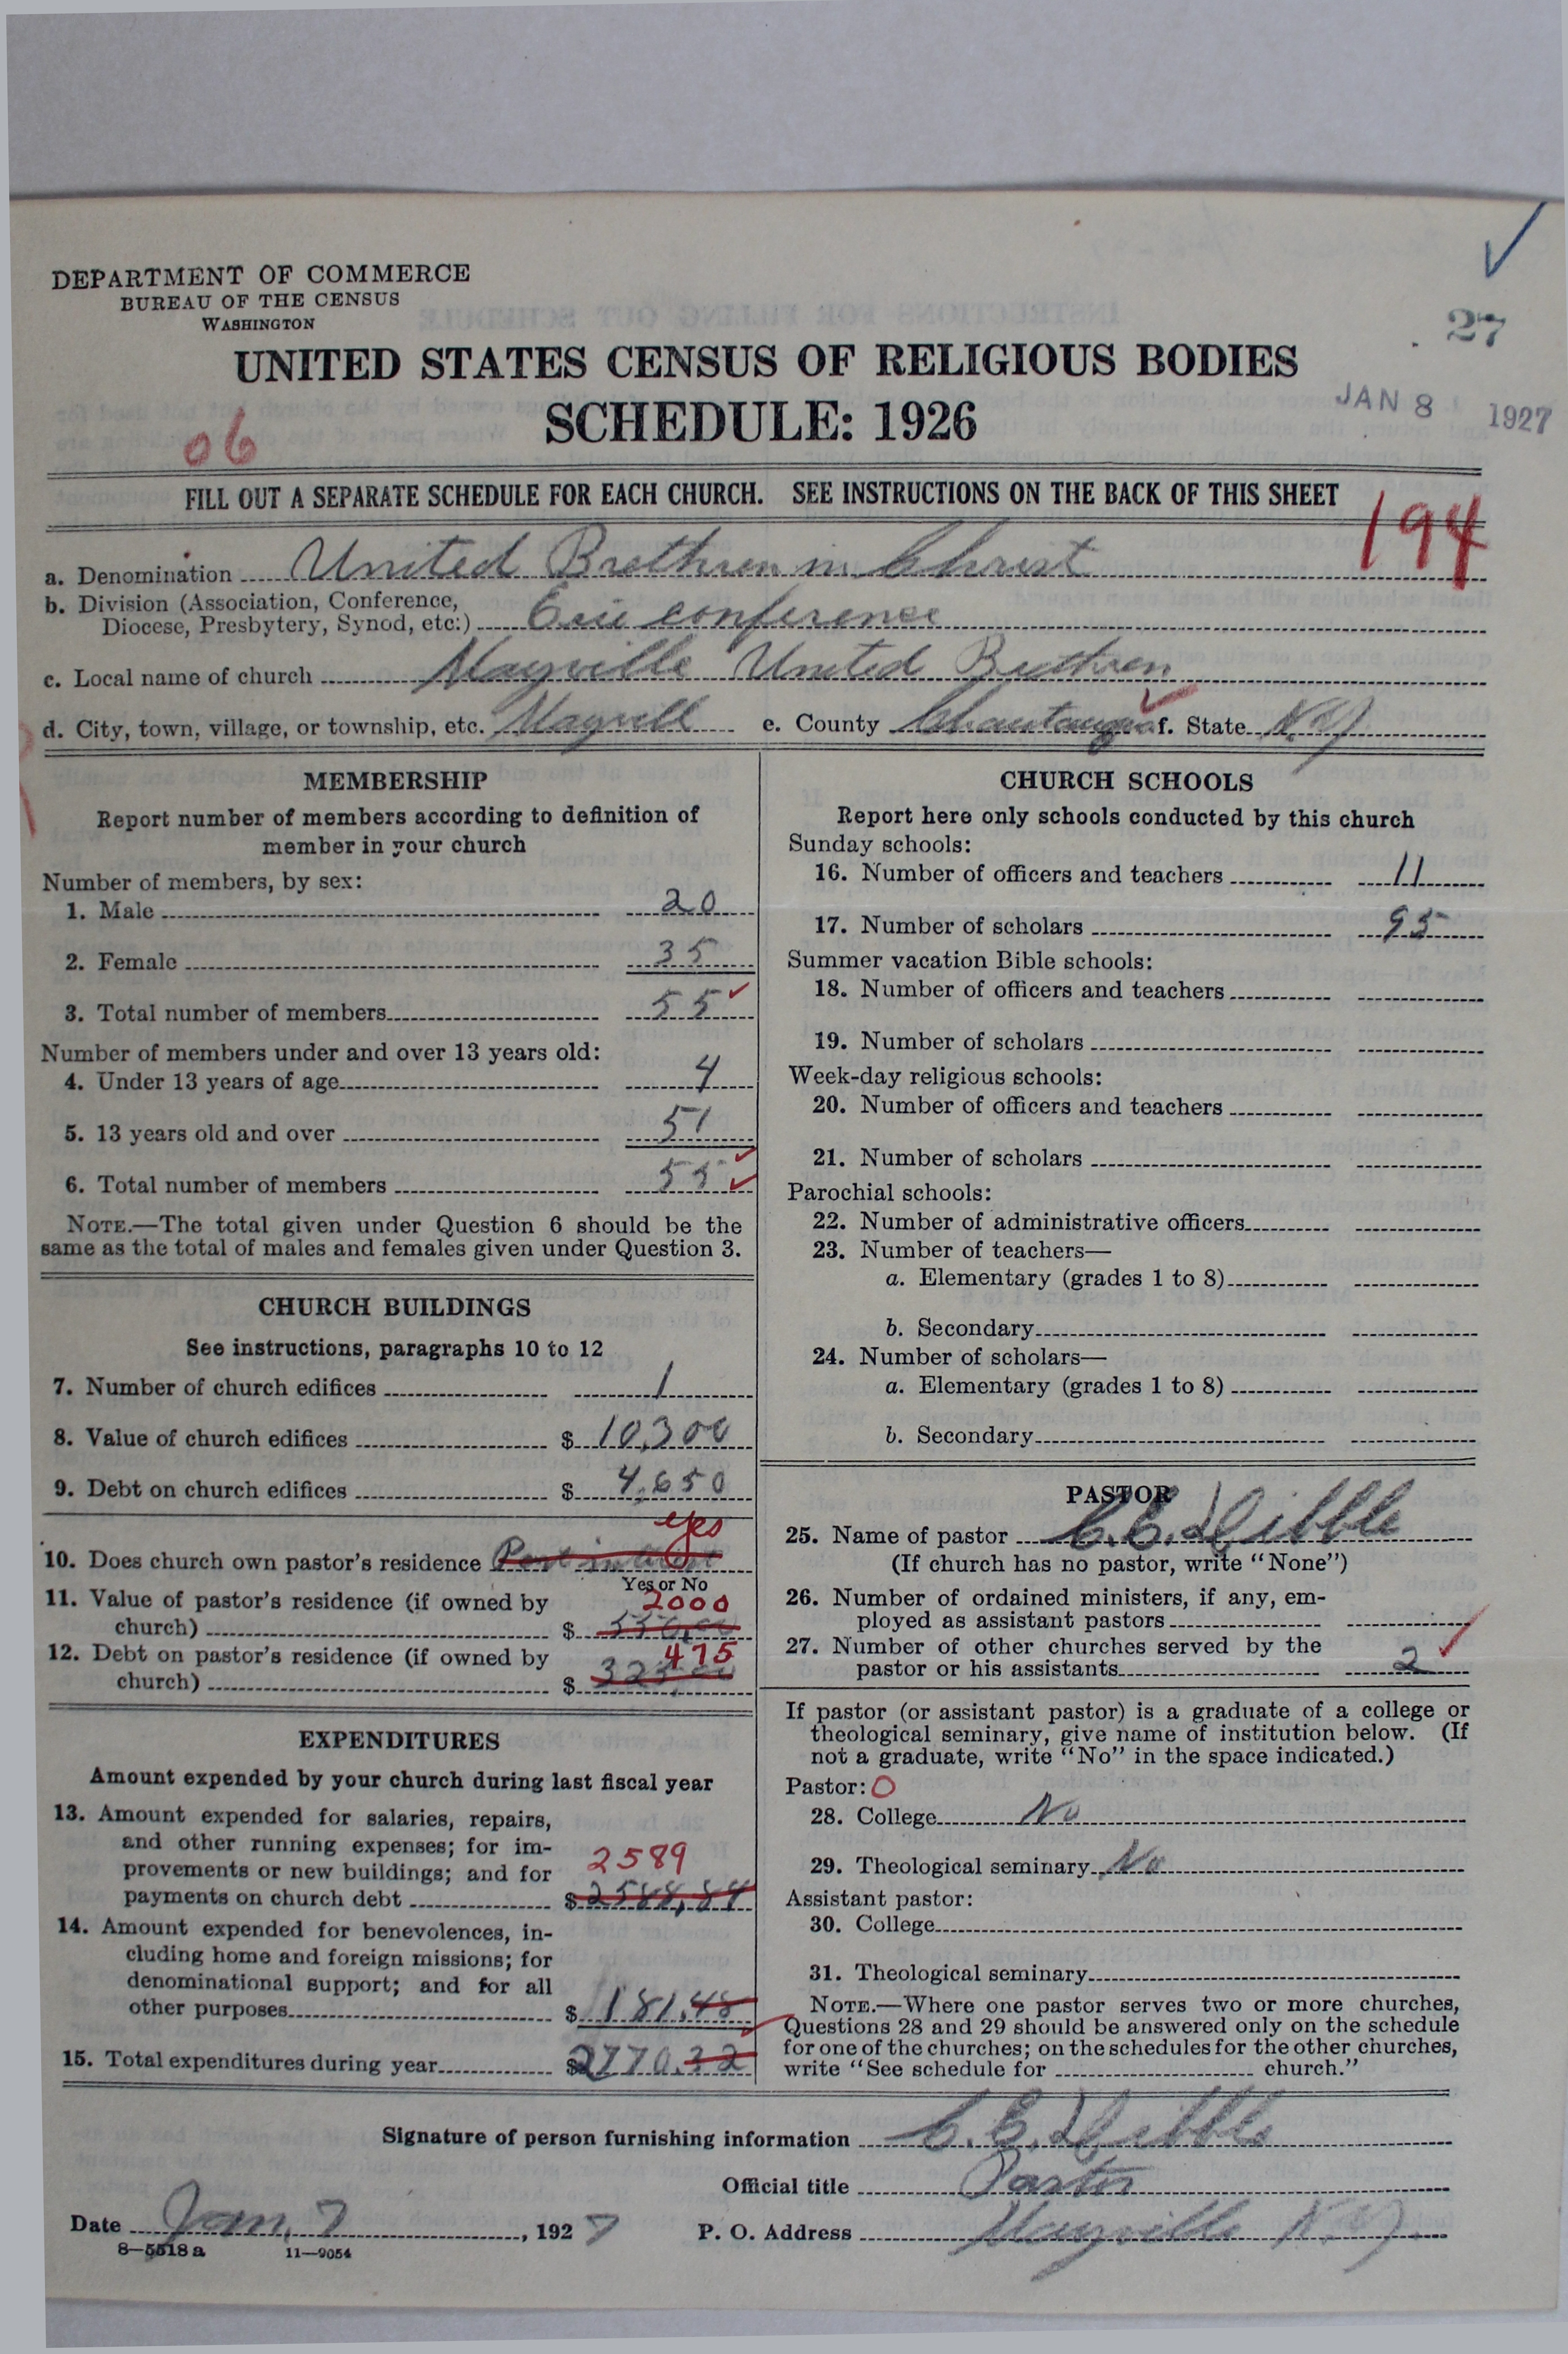 DEPARTMENT OF COMMERCE
BUREAU OF THE CENSUS
WASHINGTON
27
UNITED STATES CENSUS OF RELIGIOUS BODIES
SCHEDULE: 1926
JAN 8 1927
06
FILL OUT A SEPARATE SCHEDULE FOR EACH CHURCH. SEE INSTRUCTIONS ON THE BACK OF THIS SHEET
194
a. Denomination United Brethren in Christ
b. Division (Association, Conference,
Diocese, Presbytery, Synod, etc.) Erie conference
c. Local name of church Mayville United Brethren
d. City, town, village, or township, etc. Mayvill e. County Chautauqua f. State N.Y.
MEMBERSHIP
Report number of members according to definition of
member in your church
Number of members, by sex:
1. Male 20
2. Female 35
3. Total number of members 55
Number of members under and over 13 years old:
4. Under 13 years of age 4
5. 13 years old and over 51
6. Total number of members 55
NOTE.—The total given under Question 6 should be the
same as the total of males and females given under Question 3.
CHURCH BUILDINGS
See instructions, paragraphs 10 to 12
7. Number of church edifices 1
8. Value of church edifices $ 10,300
9. Debt on church edifices $ 4,650
yes
10. Does church own pastor's residence Part interest
Yes or No
11. Value of pastor's residence (if owned by 2000
church) $ 550,00
12. Debt on pastor's residence (if owned by 475
church) $ 325,00
EXPENDITURES
Amount expended by your church during last fiscal year
13. Amount expended for salaries, repairs,
and other running expenses; for im-
provements or new buildings; and for 2589
payments on church debt $ 2588,84
14. Amount expended for benevolences, in-
cluding home and foreign missions; for
denominational support; and for all
other purposes $ 181.48
15. Total expenditures during year $2770.32
CHURCH SCHOOLS
Report here only schools conducted by this church
Sunday schools:
16. Number of officers and teachers 11
17. Number of scholars 95
Summer vacation Bible schools:
18. Number of officers and teachers
19. Number of scholars
Week-day religious schools:
20. Number of officers and teachers
21. Number of scholars
Parochial schools:
22. Number of administrative officers
23. Number of teachers—
a. Elementary (grades 1 to 8)
b. Secondary
24. Number of scholars—
a. Elementary (grades 1 to 8)
b. Secondary
PASTOR
25. Name of pastor C.C. Dibble
(If church has no pastor, write "None")
26. Number of ordained ministers, if any, em-
ployed as assistant pastors
27. Number of other churches served by the
pastor or his assistants 2
If pastor (or assistant pastor) is a graduate of a college or
theological seminary, give name of institution below. (If
not a graduate, write "No" in the space indicated.)
Pastor: O
28. College No
29. Theological seminary No
Assistant pastor:
30. College
31. Theological seminary
NOTE.—Where one pastor serves two or more churches,
Questions 28 and 29 should be answered only on the schedule
for one of the churches; on the schedules for the other churches,
write "See schedule for church."
Signature of person furnishing information C.C. Dibble
Official title Pastor
Date Jan. 7, 1927 P. O. Address Mayville N.Y.
8—5518 a 11—9054